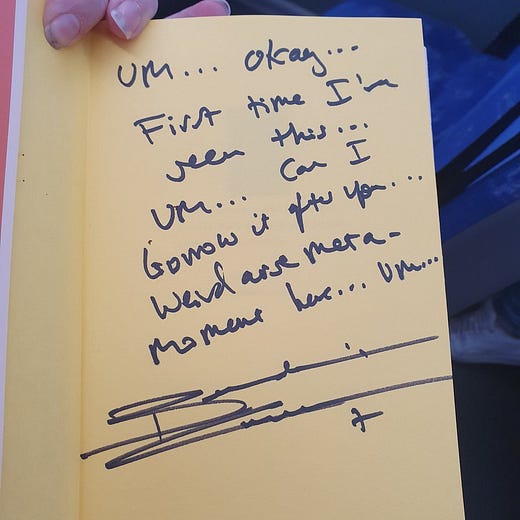 UM... okay...
First time I'm
seen this...
UM... Can I
borrow it after you...
Weird arse meta-
moment here... UM...